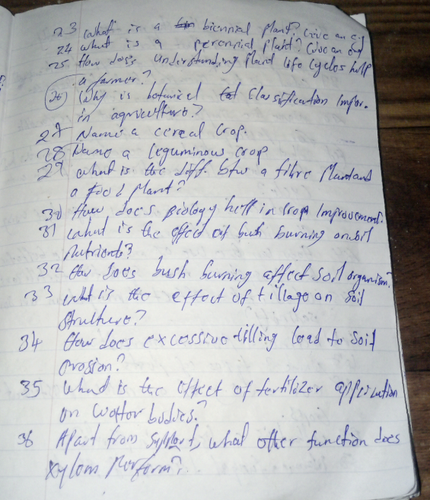 23 What is a biennial plant? Give an eg
24 What is a perennial plant? Give an eg
25 How does understanding plant life cycles help
a farmer?
26 Why is botanical classification impor.
in agriculture?
27 Name a cereal crop.
28 Name a leguminous crop
29 What is the diff. btw a fibre plant and
a food plant?
30 How does biology help in crop improvement.
31 What is the effect of bush burning on soil
nutrients?
32 How does bush burning affect soil organism?
33 what is the effect of tillage on soil
structure?
34 How does excessive tilling lead to soil
erosion?
35 What is the effect of fertilizer application
on water bodies?
36 Apart from support, what other function does
xylem perform?